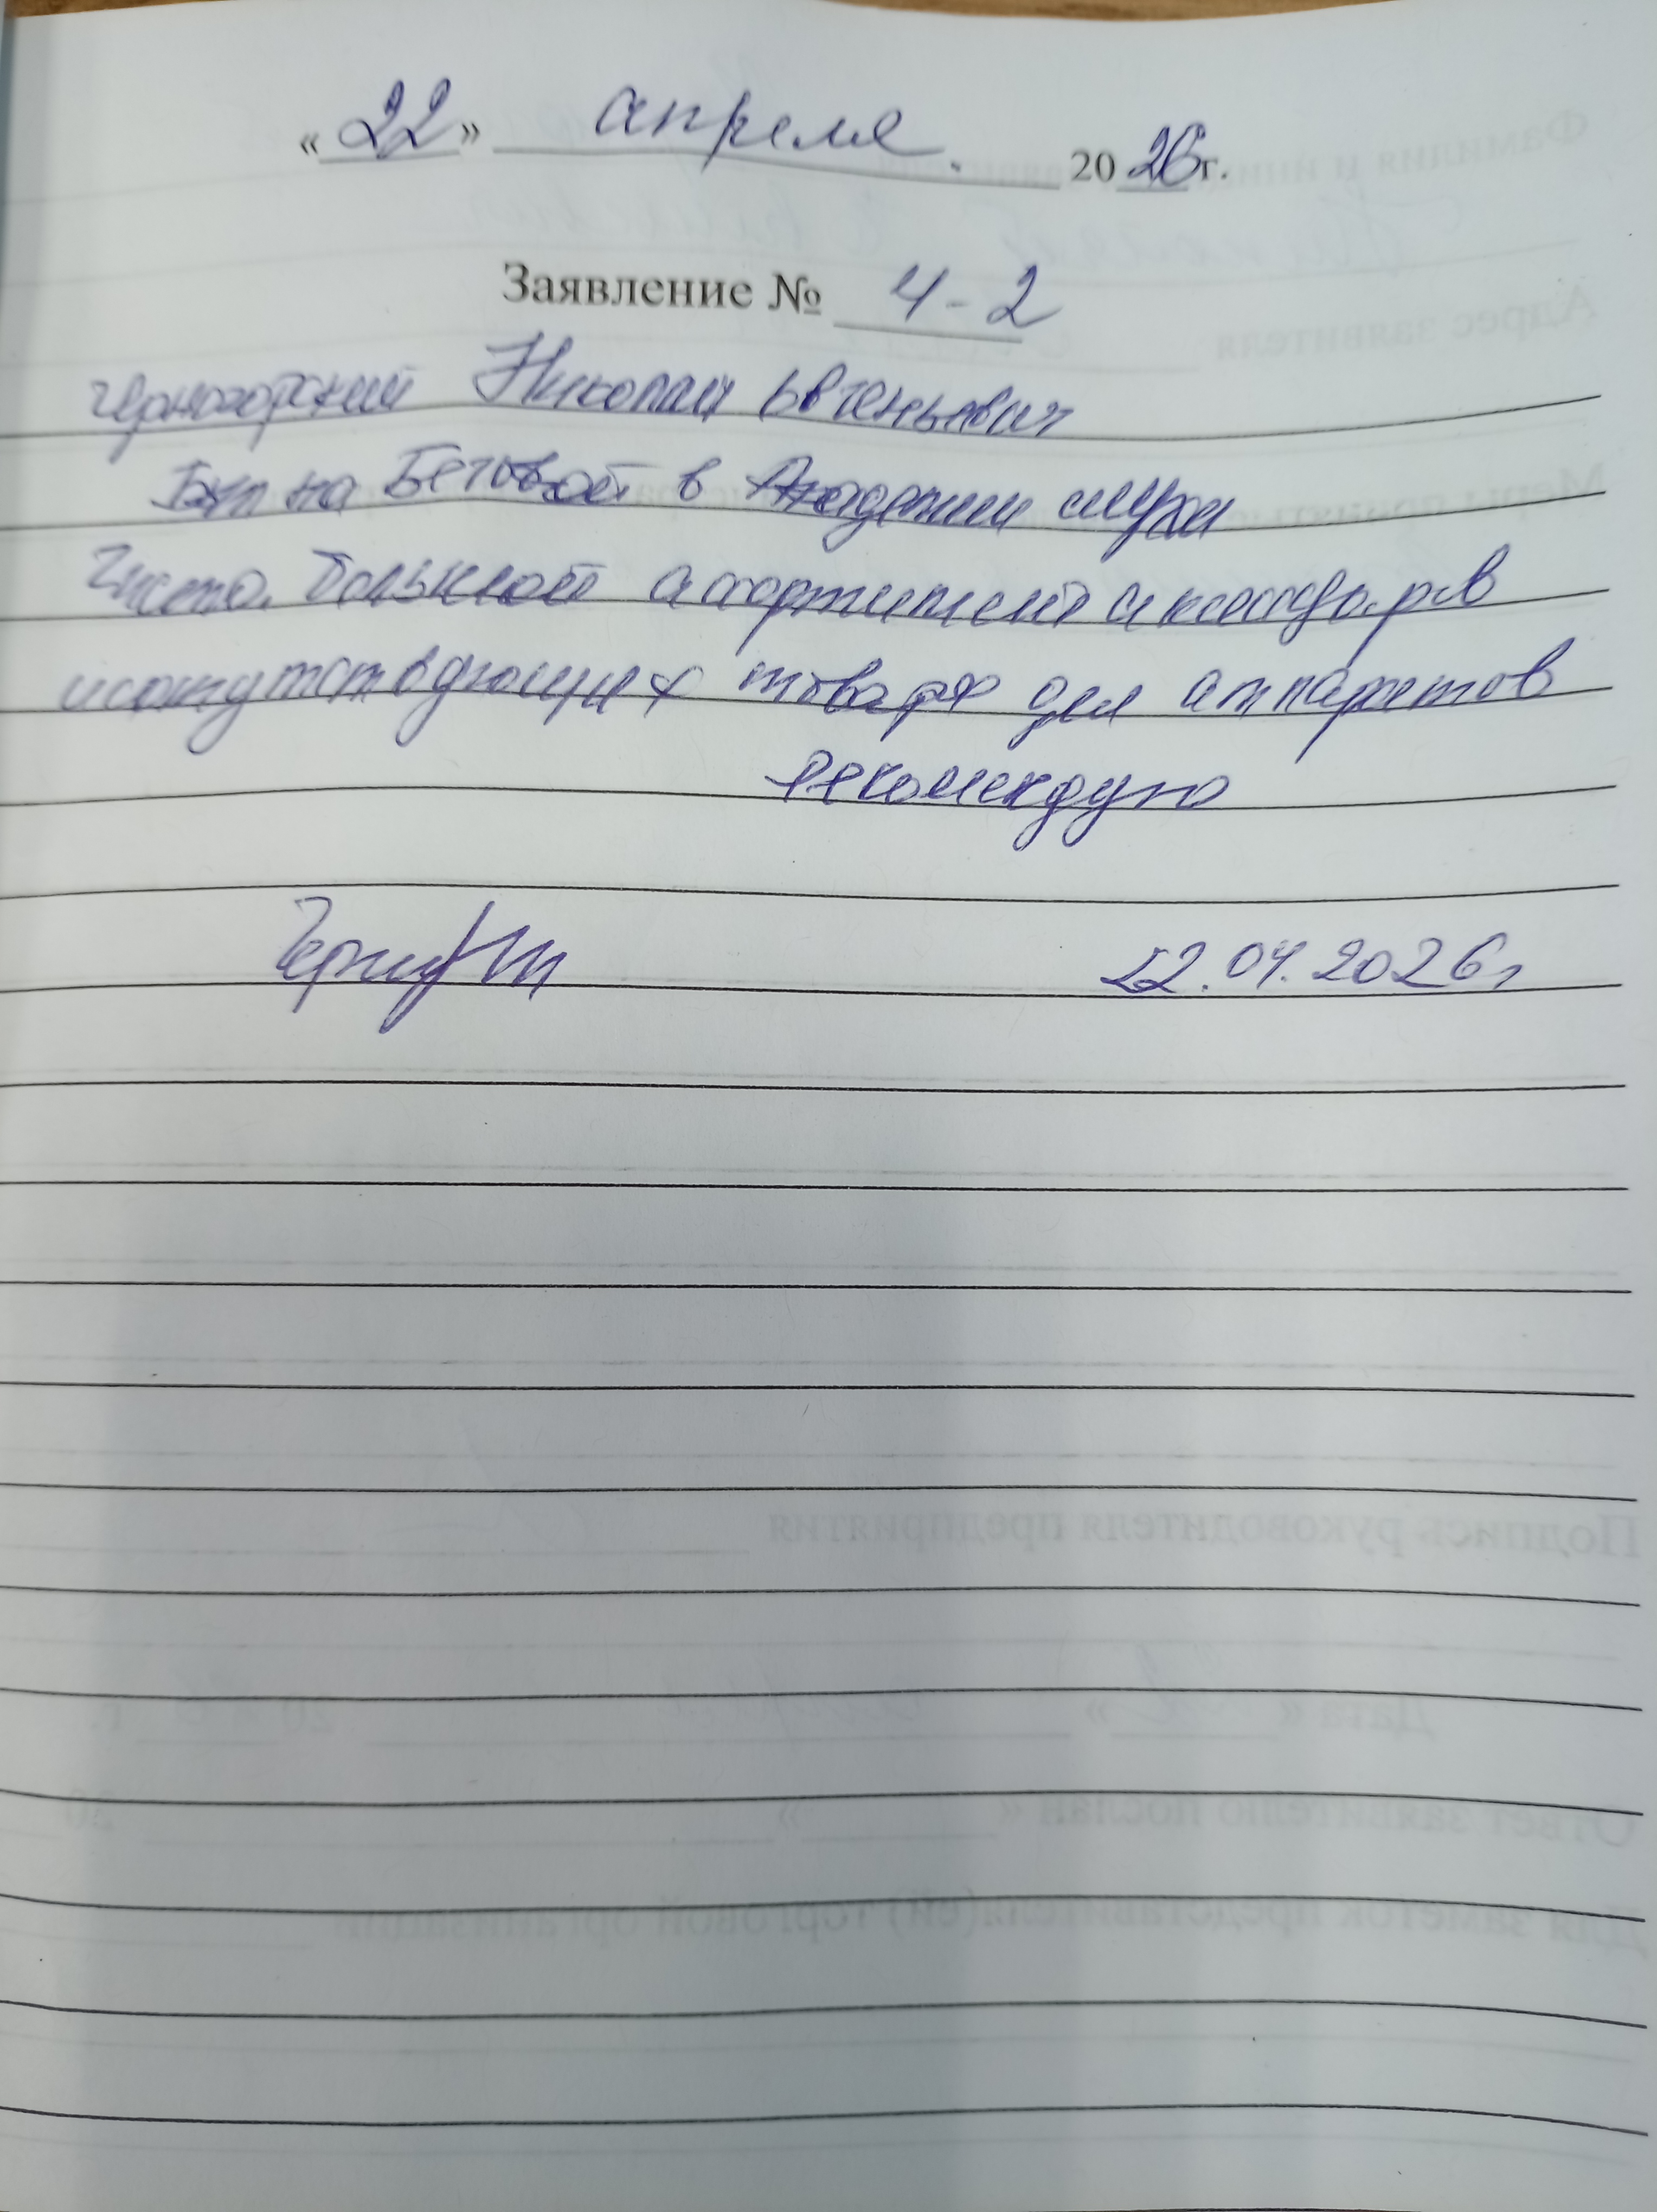 «22» апреля 2026г.
Заявление № 4-2
Черногорский Николай Евгеньевич
Был на Беговой в Академии слуха
Чисто. Большой ассортимент аксессуаров
и сопутствующих товаров для аппаратов
рекомендую
22.04.2026г